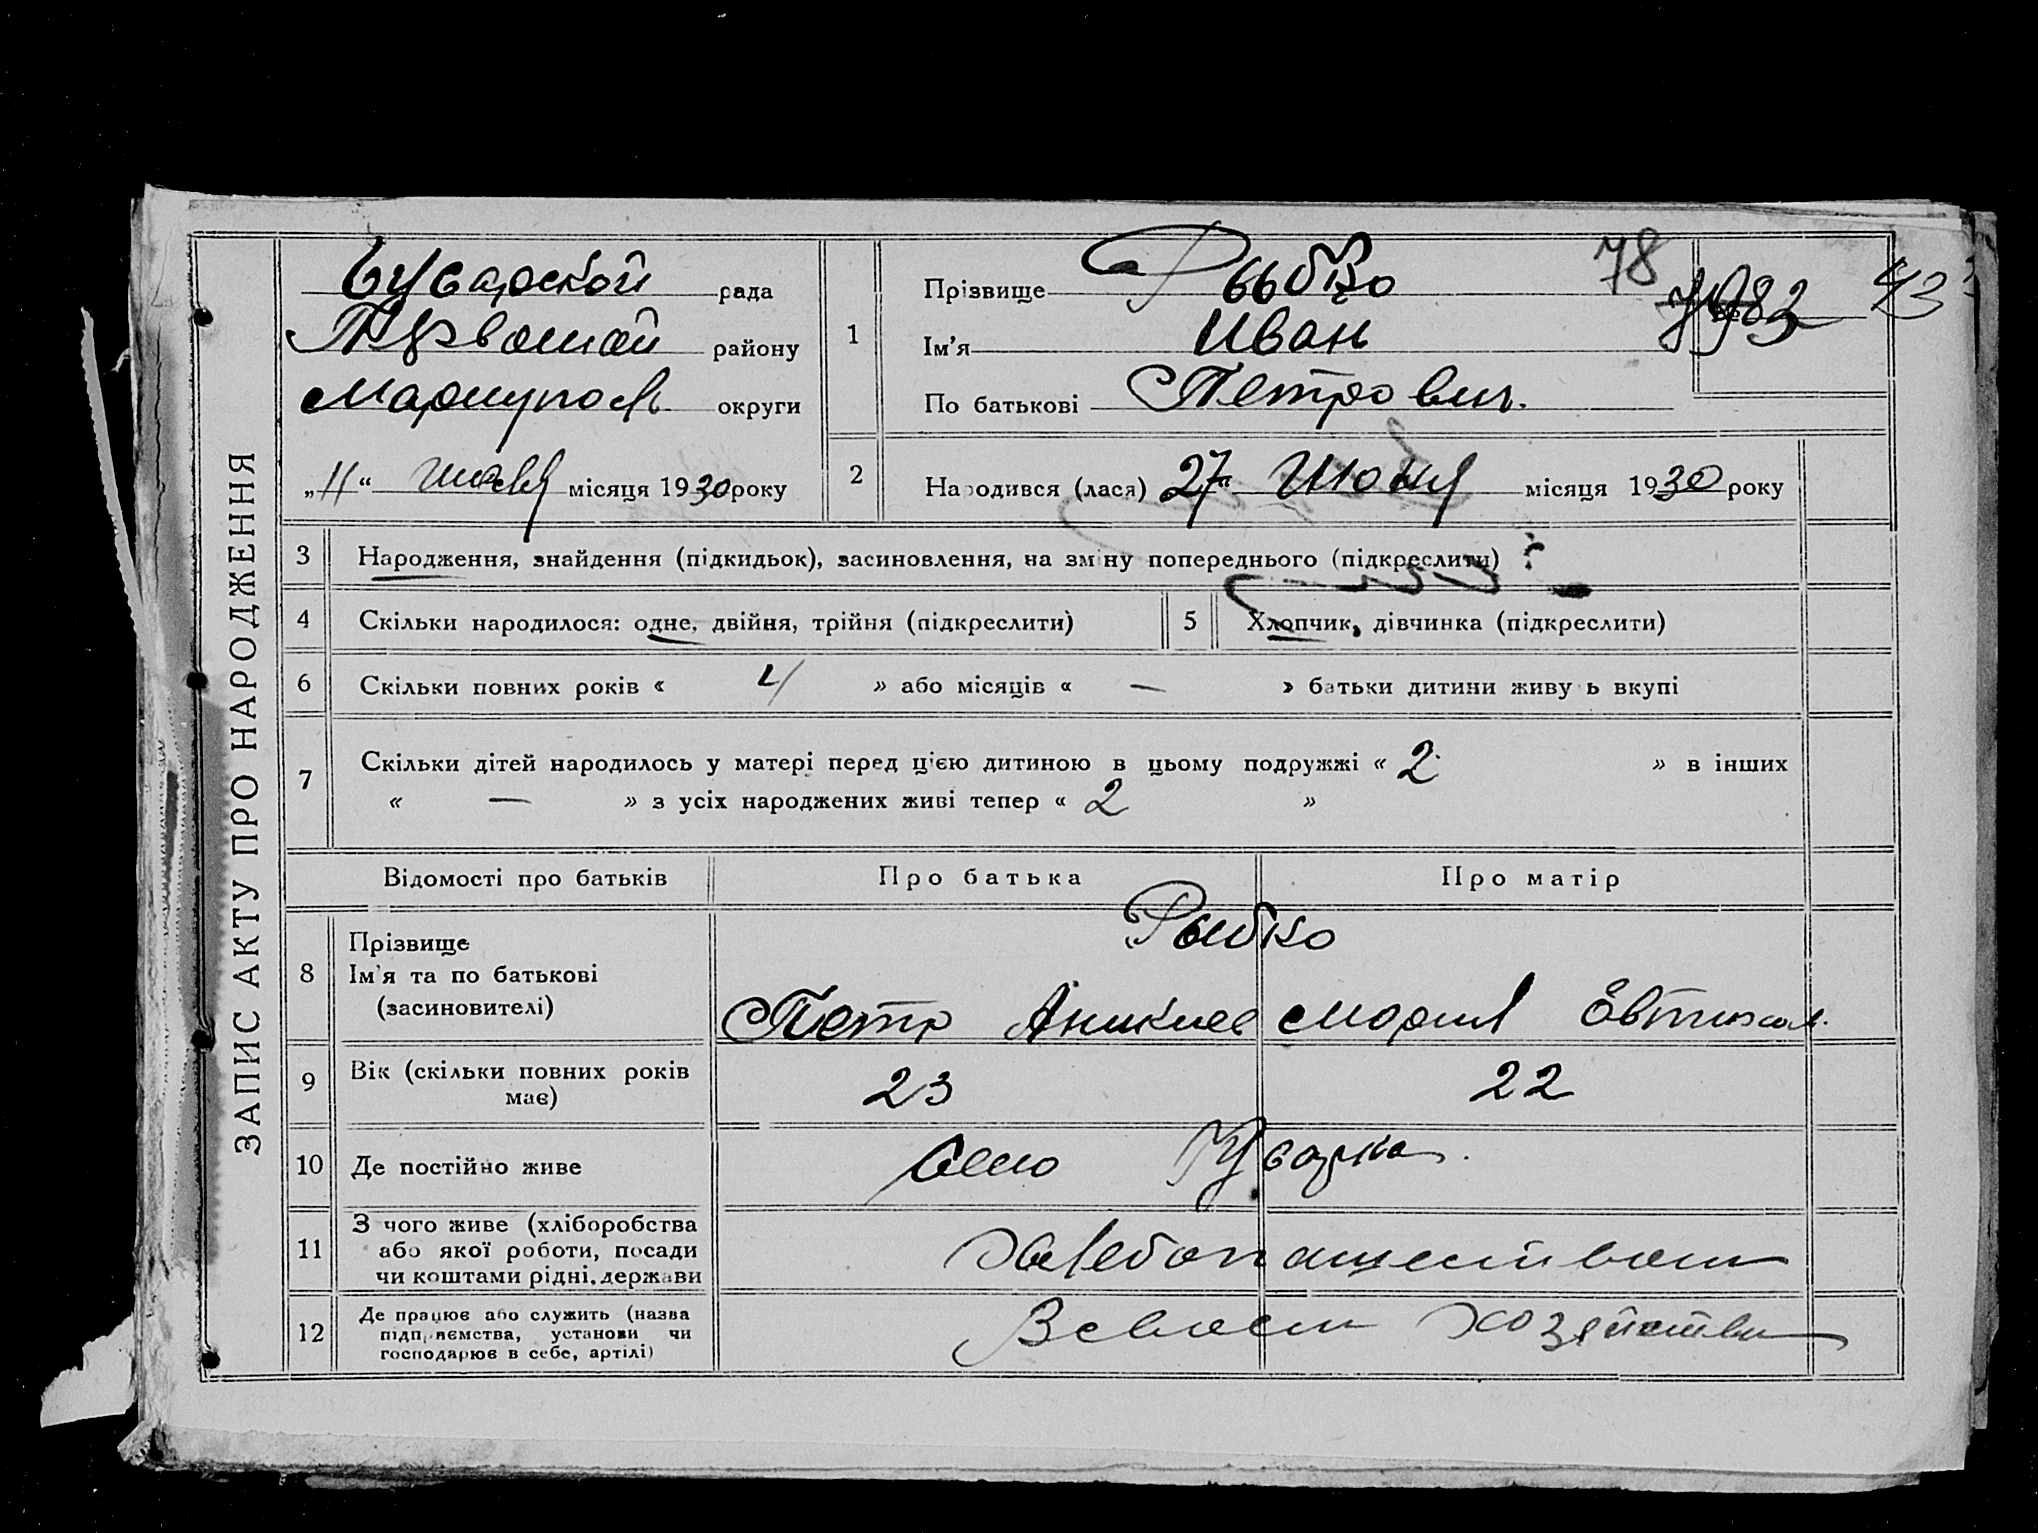 ЗАПИС АКТУ ПРО НАРОДЖЕННЯ
рада
району
Мариуполь округи
„11“ июля місяця 1930 року
1
Прізвище Рыбко
Ім'я Иван
По батькові Петрович.
78
43
2
Народився (лася) 27 Июня місяця 1930 року
3 Народження, знайдення (підкидьок), засиновлення, на зміну попереднього (підкреслити) ?
4 Скільки народилося: одне, двійня, трійня (підкреслити)
5 Хлопчик, дівчинка (підкреслити)
6 Скільки повних років « 4 » або місяців « — » батьки дитини живуть вкупі
7 Скільки дітей народилось у матері перед цією дитиною в цьому подружжі « 2 » в інших
« — » з усіх народжених живі тепер « 2 »
Відомості про батьків Про батька Про матір
8 Прізвище
Ім'я та по батькові
(засиновителі)
Рыбко
Петр Аникиев Мария
9 Вік (скільки повних років
має)
23 22
10 Де постійно живе
Село
11 З чого живе (хліборобства
або якої роботи, посади
чи коштами рідні, держави
Хлебопашеством
12 Де працює або служить (назва
підприємства, установи чи
господарює в себе, артілі)
В своем хозяйстве